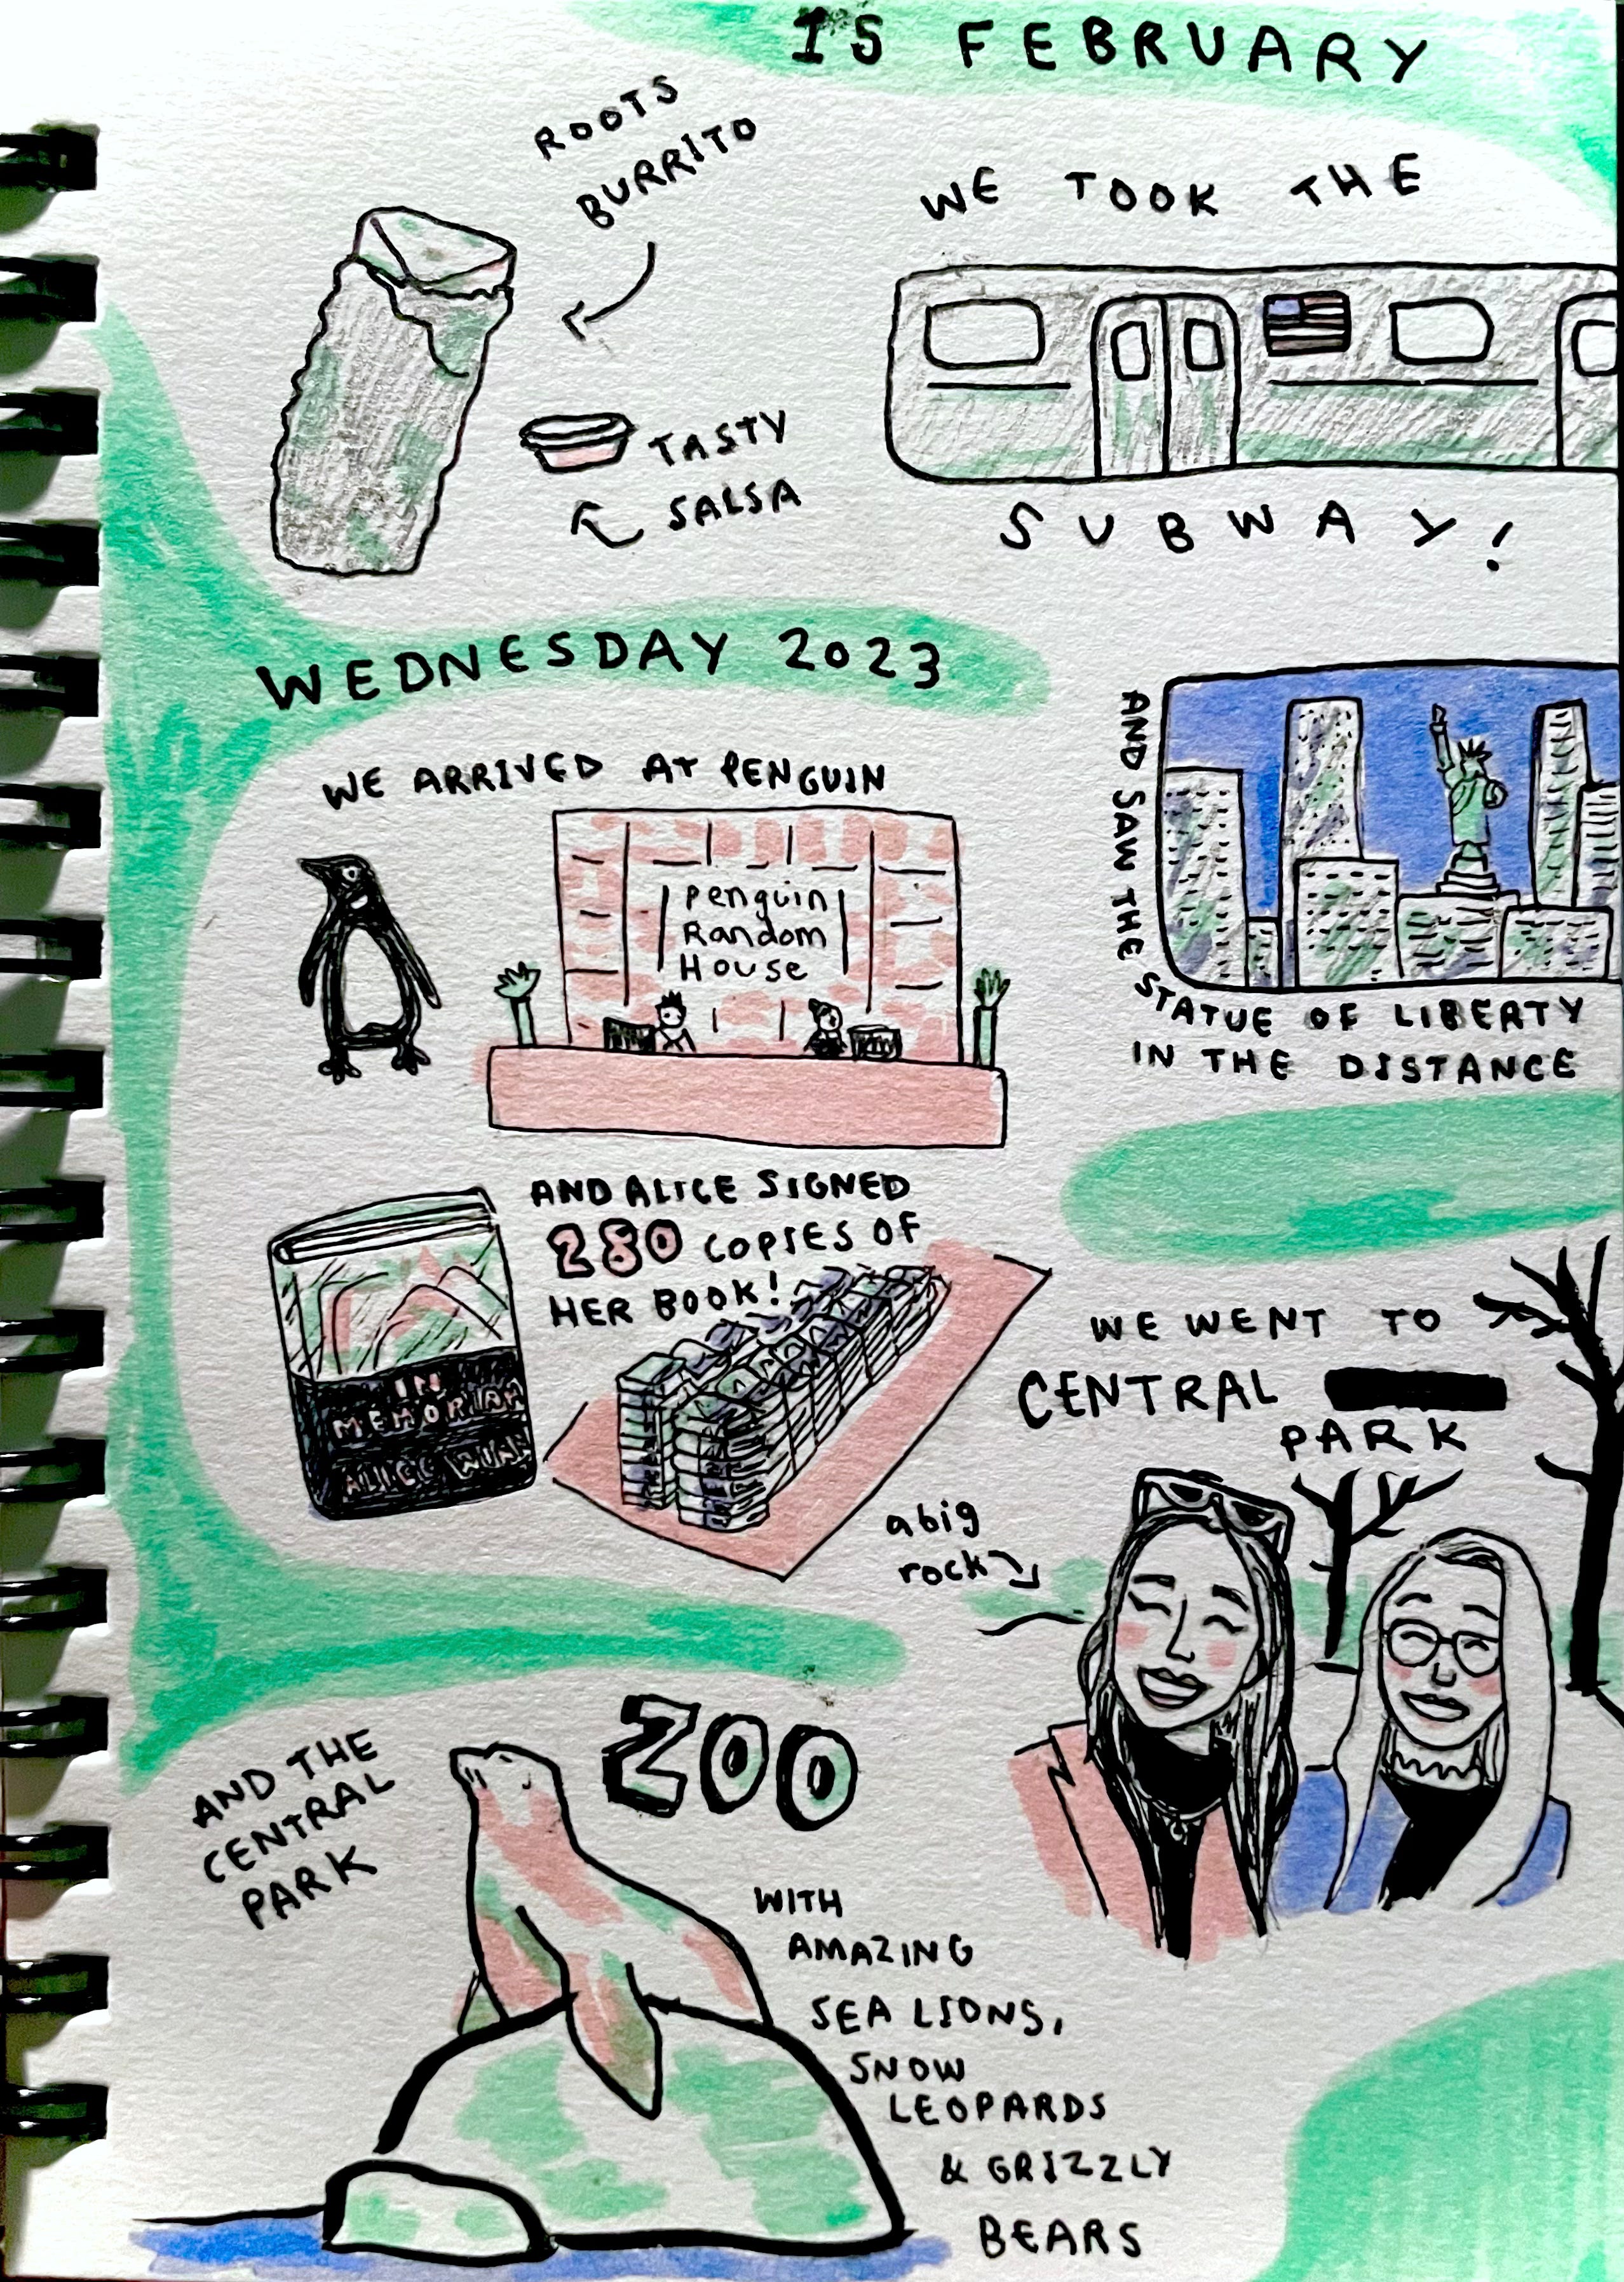 15 FEBRUARY
ROOTS
BURRITO
TASTY
SALSA
WE TOOK THE
SUBWAY!
WEDNESDAY 2023
WE ARRIVED AT PENGUIN
Penguin
Random
House
AND SAW THE
STATUE OF LIBERTY
IN THE DISTANCE
AND ALICE SIGNED
280 COPIES OF
HER BOOK!
IN
MEMORIAM
ALICE WINN
WE WENT TO
CENTRAL
PARK
a big
rock
AND THE
CENTRAL
PARK
ZOO
WITH
AMAZING
SEA LIONS,
SNOW
LEOPARDS
& GRIZZLY
BEARS